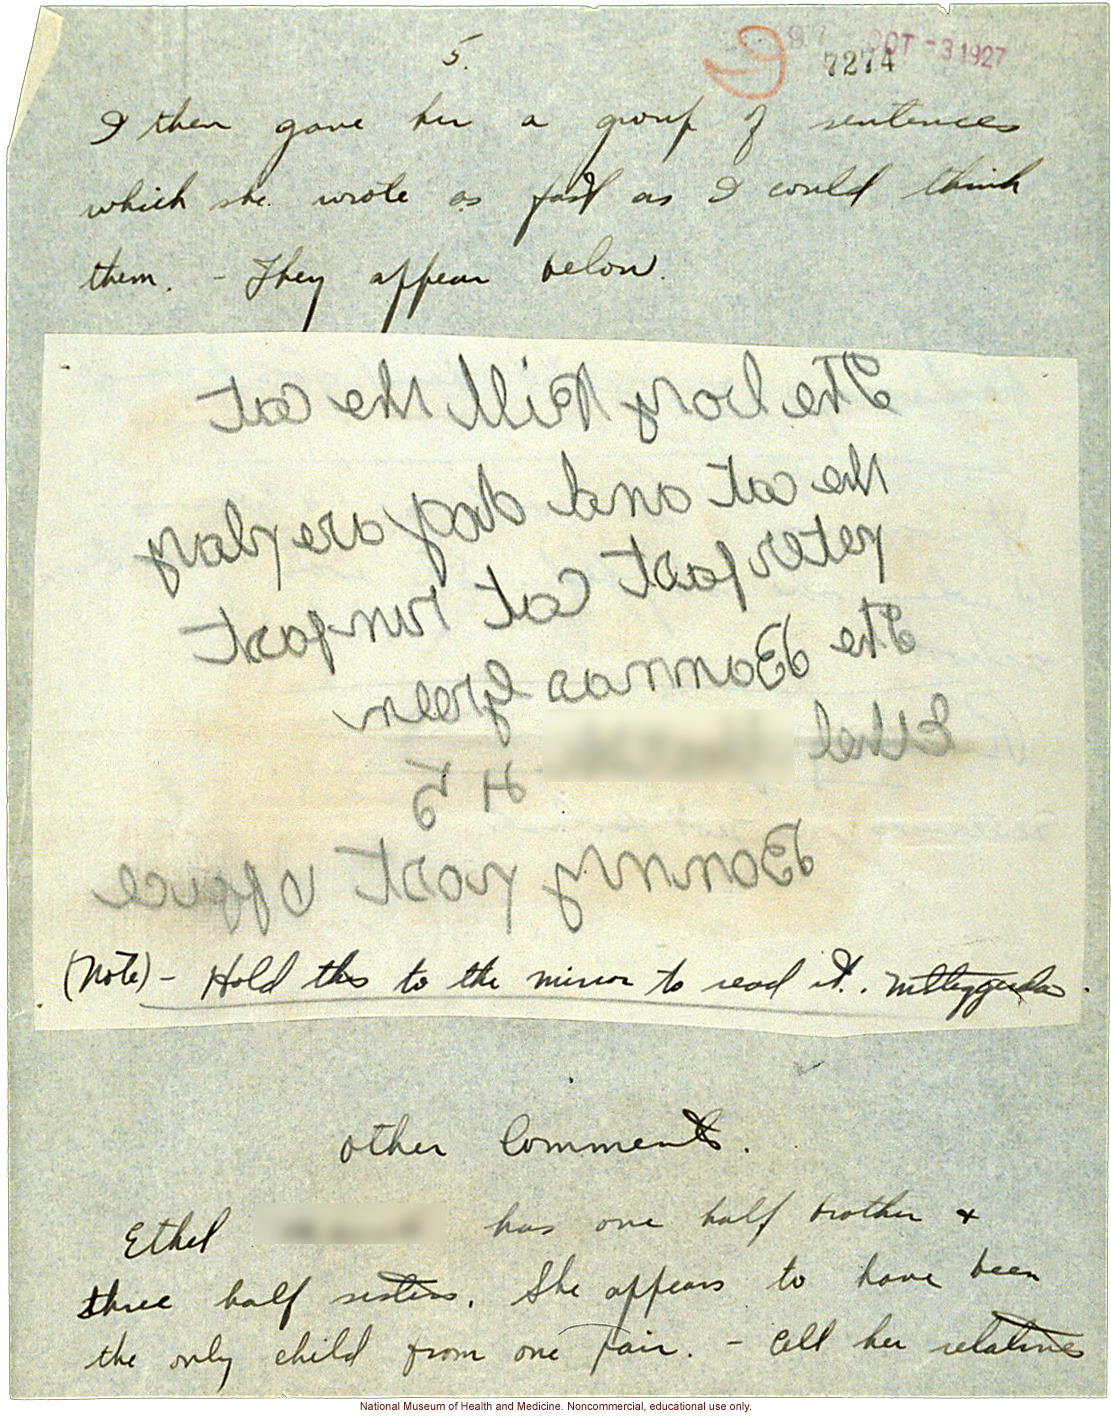 5.
9
7274
OCT -3 1927
I then gave her a group of sentences
which she wrote as fast as I could think
them. - They appear below.
The boy Kill the cat
the cat and dog are play
peter fast cat run fast
The Bannas green
Ethel
H 5
Bonny post ofice
(Note) - Hold this to the mirror to read it. M Steggerda.
Other Comments.
Ethel has one half brother &
three half sisters. She appears to have been
the only child from one pair. - All her relatives
National Museum of Health and Medicine. Noncommercial, educational use only.